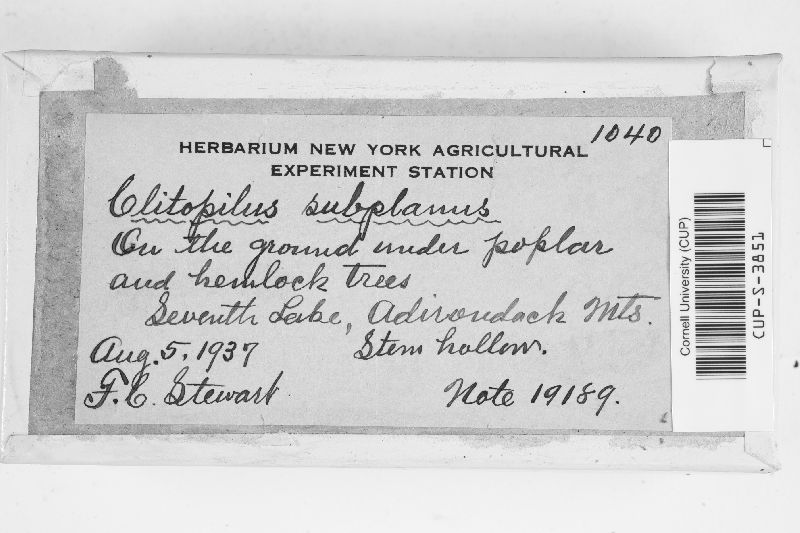 1040
HERBARIUM NEW YORK AGRICULTURAL
EXPERIMENT STATION
Clitopilus subplanus
On the ground under poplar
and hemlock trees
Seventh Lake, Adirondack Mts.
Aug. 5, 1937 Stem hollow.
F. C. Stewart Note 19189.
Cornell University (CUP)
CUP-S-3851